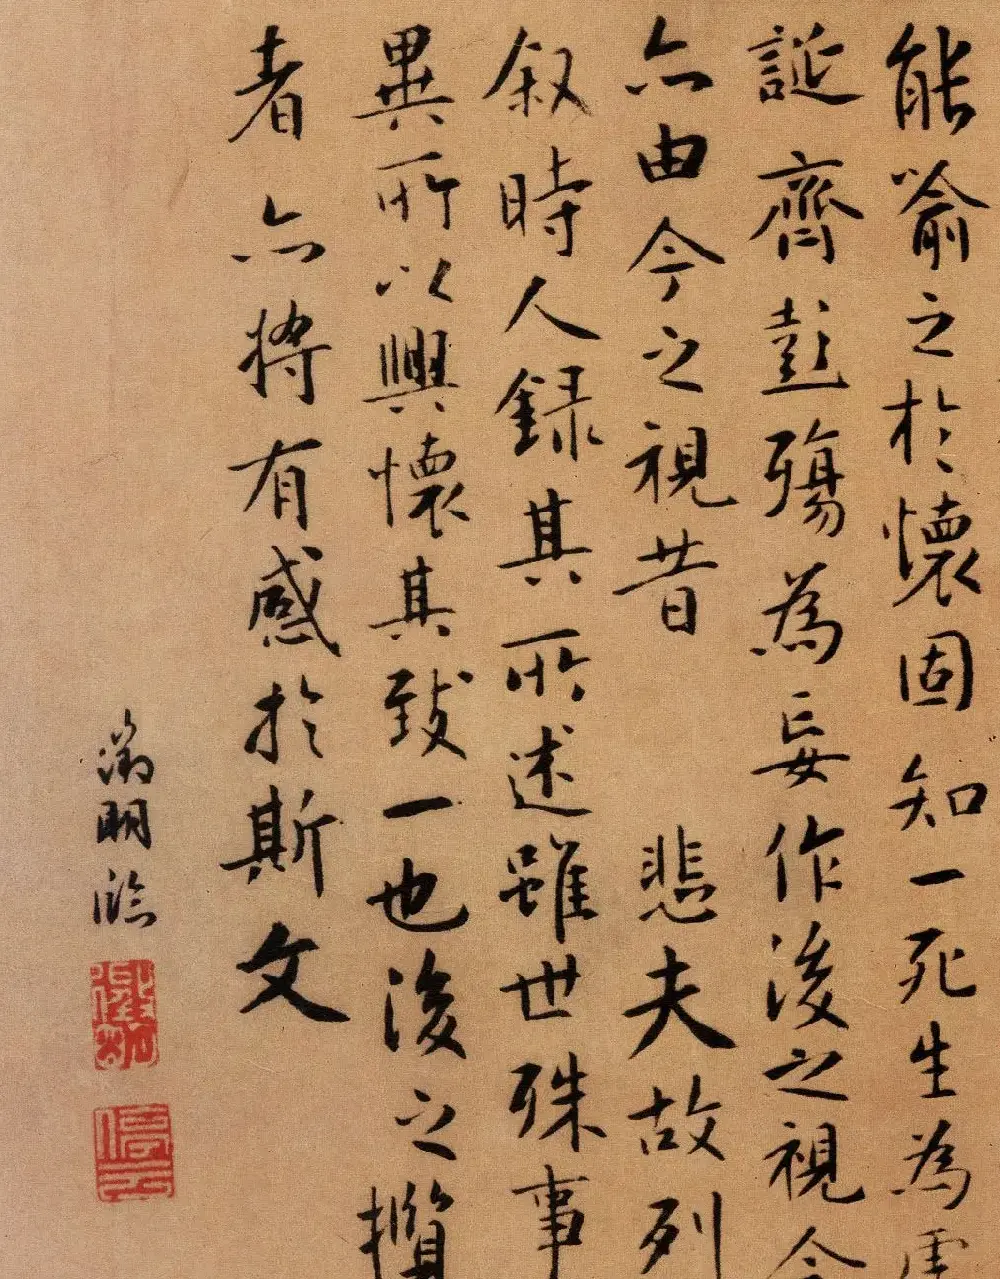 能喻之於懷固知一死生為虚
誕齊彭殤為妄作後之視今
亦由今之視昔 悲夫故列
叙時人録其所述雖世殊事
異所以興懷其致一也後之攬
者亦将有感於斯文
徵明臨
停雲